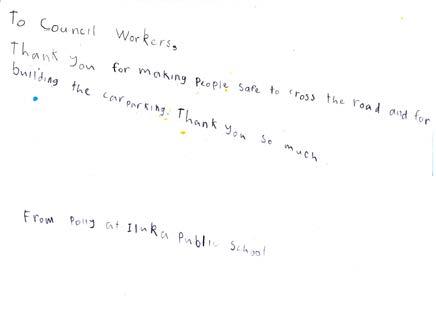 To Council Workers,
Thank you for making people safe to cross the road and for
building the carparking. Thank you so much
From Polly at Iluka Public School